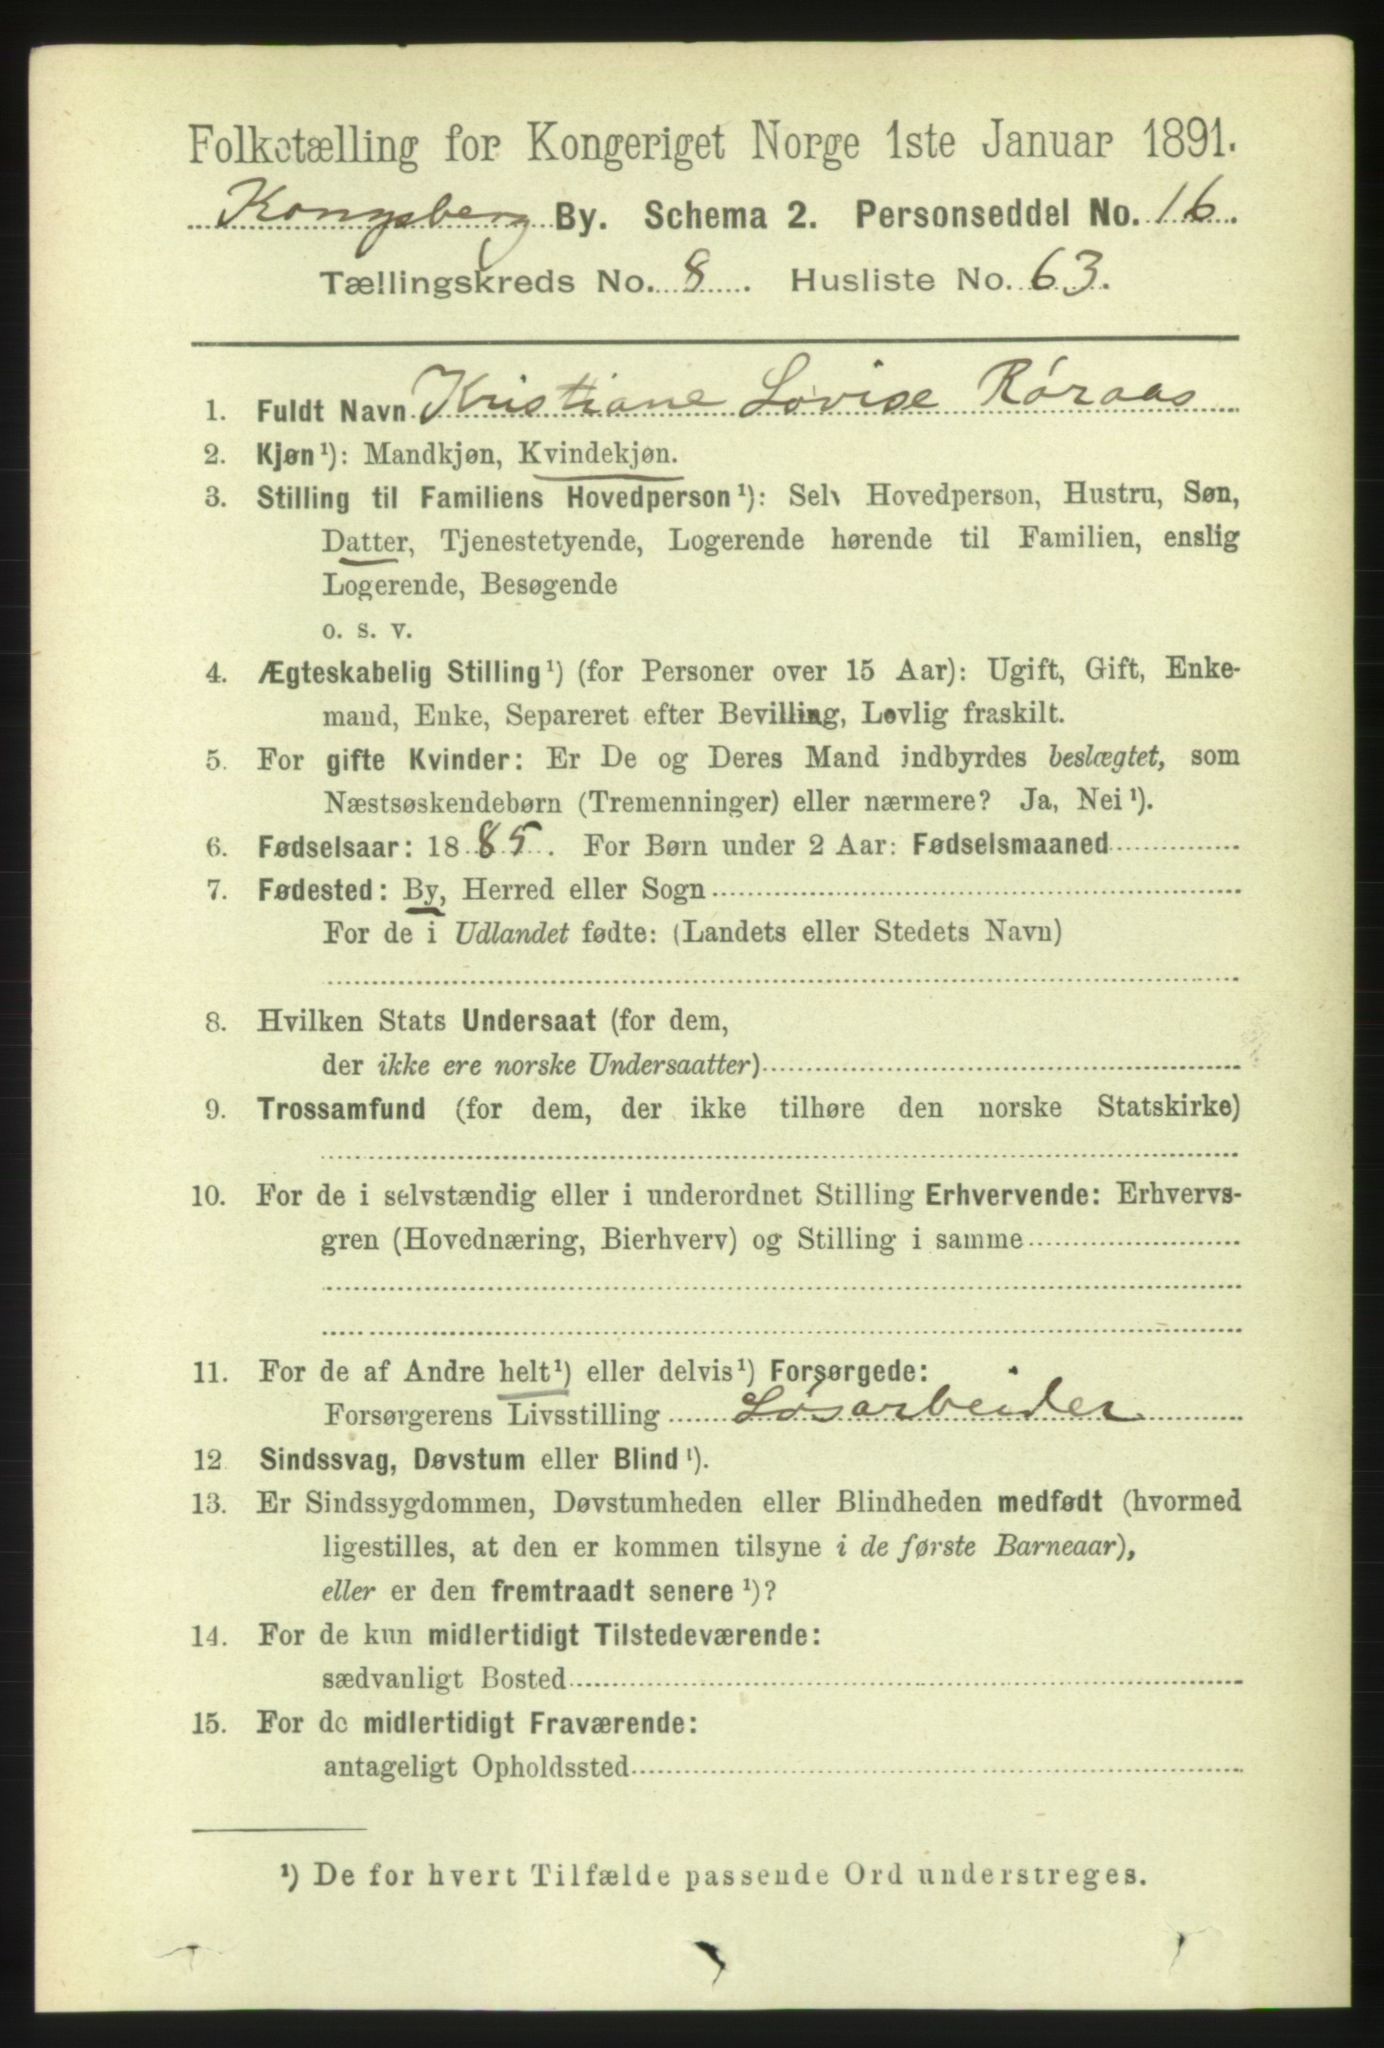 Folketælling for Kongeriget Norge 1ste Januar 1891.
Kongsberg By. Schema 2. Personseddel No. 16.
Tællingskreds No. 8. Husliste No. 63.
1. Fuldt Navn Kristiane Lovise Róraas
2. Kjøn¹): Mandkjøn, Kvindekjøn.
3. Stilling til Familiens Hovedperson¹): Selv Hovedperson, Hustru, Søn,
Datter, Tjenestetyende, Logerende hørende til Familien, enslig
Logerende, Besøgende
o. s. v.
4. Ægteskabelig Stilling¹) (for Personer over 15 Aar): Ugift, Gift, Enke-
mand, Enke, Separeret efter Bevilling, Lovlig fraskilt.
5. For gifte Kvinder: Er De og Deres Mand indbyrdes beslægtet, som
Næstsøskendebørn (Tremenninger) eller nærmere? Ja, Nei¹).
6. Fødselsaar: 1885. For Børn under 2 Aar: Fødselsmaaned
7. Fødested: By, Herred eller Sogn
For de i Udlandet fødte: (Landets eller Stedets Navn)
8. Hvilken Stats Undersaat (for dem,
der ikke ere norske Undersaatter)
9. Trossamfund (for dem, der ikke tilhøre den norske Statskirke)
10. For de i selvstændig eller i underordnet Stilling Erhvervende: Erhvervs-
gren (Hovednæring, Bierhverv) og Stilling i samme
11. For de af Andre helt¹) eller delvis¹) Forsørgede:
Forsørgerens Livsstilling Løsarbeider
12 Sindssvag, Døvstum eller Blind¹).
13. Er Sindssygdommen, Døvstumheden eller Blindheden medfødt (hvormed
ligestilles, at den er kommen tilsyne i de første Barneaar),
eller er den fremtraadt senere¹)?
14. For de kun midlertidigt Tilstedeværende:
sædvanligt Bosted
15. For de midlertidigt Fraværende:
antageligt Opholdssted
¹) De for hvert Tilfælde passende Ord understreges.